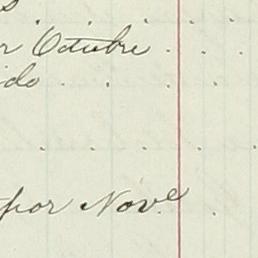 s
r Octubre
ido
por Nov.e